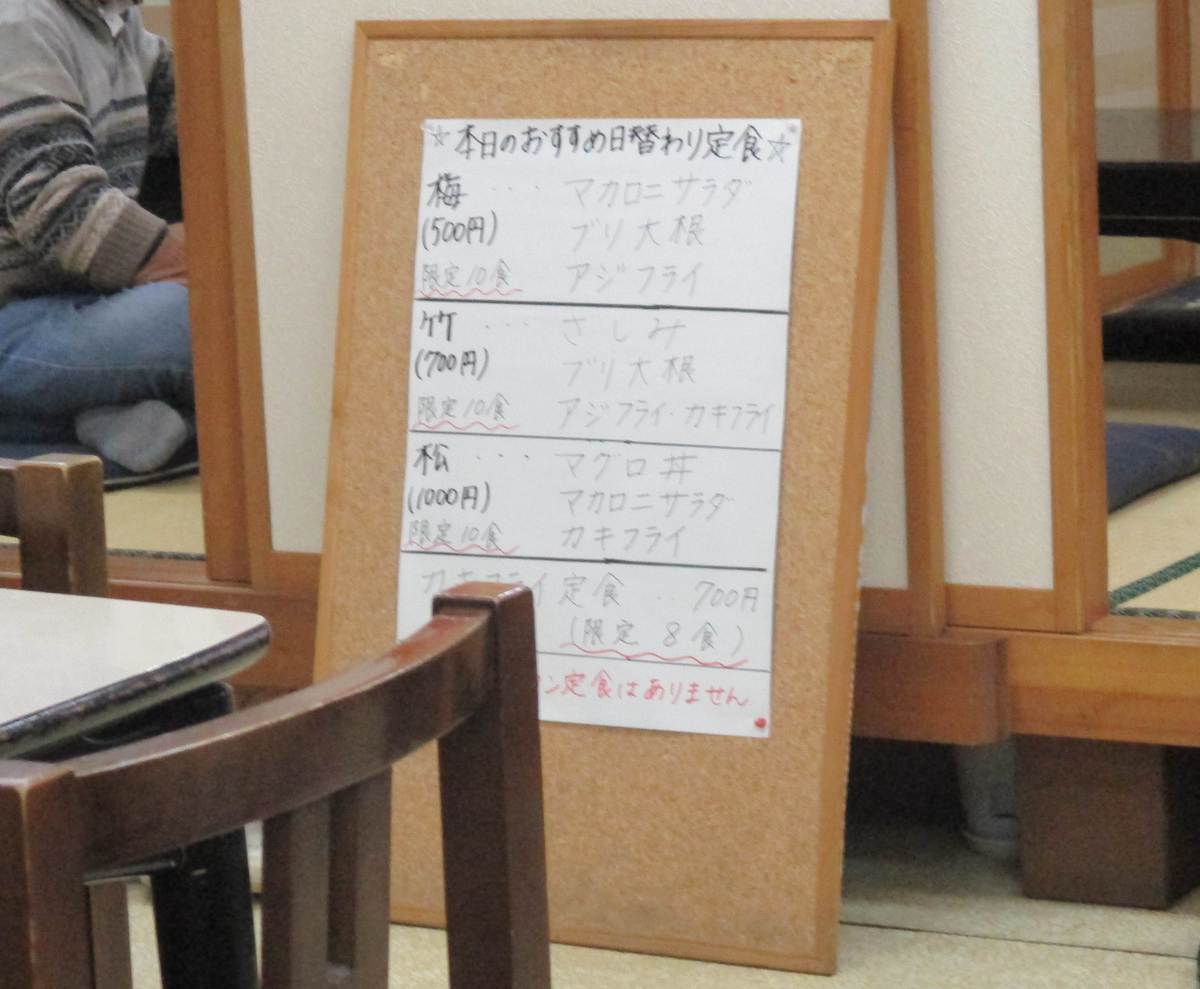 ☆本日のおすすめ日替わり定食☆
梅 ・・・ マカロニサラダ
(500円) ブリ大根
限定10食 アジフライ
竹 ・・・ さしみ
(700円) ブリ大根
限定10食 アジフライ・カキフライ
松 ・・・ マグロ丼
(1000円) マカロニサラダ
限定10食 カキフライ
カキフライ定食 ・・ 700円
(限定 8食)
ン定食はありません